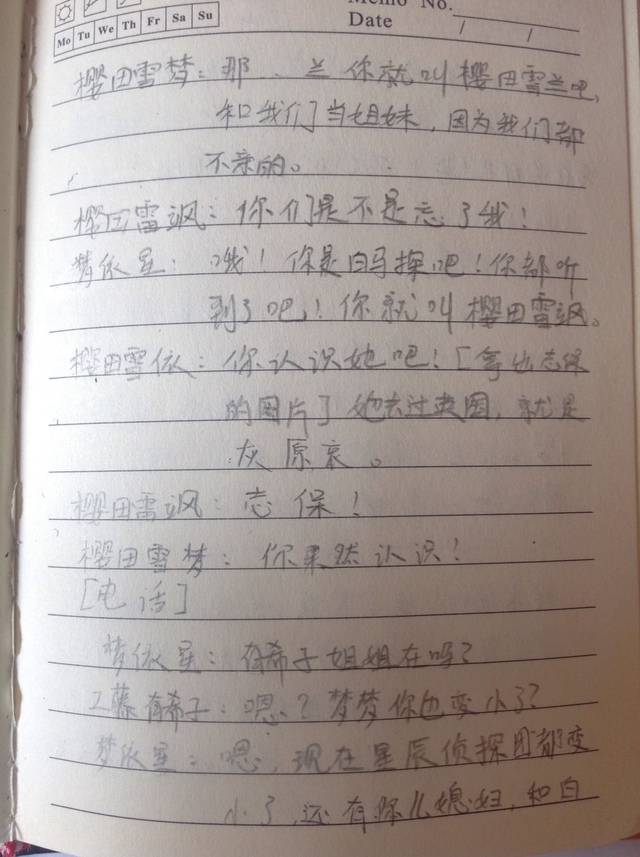 Memo No.
Mo Tu We Th Fr Sa Su
Date / /
樱田雪梦：那．．兰你就叫樱田雪兰吧，
和我们当姐妹，因为我们都
不亲的。
樱田雪飒：你们是不是忘了我！
梦依星：哦！你是白马探吧！你都听
到了吧！你就叫樱田雪飒。
樱田雪依：你认识她吧！[拿出志保
的图片] 她去过英国，就是
灰原哀。
樱田雪飒：志保！
樱田雪梦：你果然认识！
[电话]
梦依星：有希子姐姐在吗？
工藤有希子：嗯？梦梦你也变小了？
梦依星：嗯，现在星辰侦探团都变
小了，还有你儿媳妇，和白